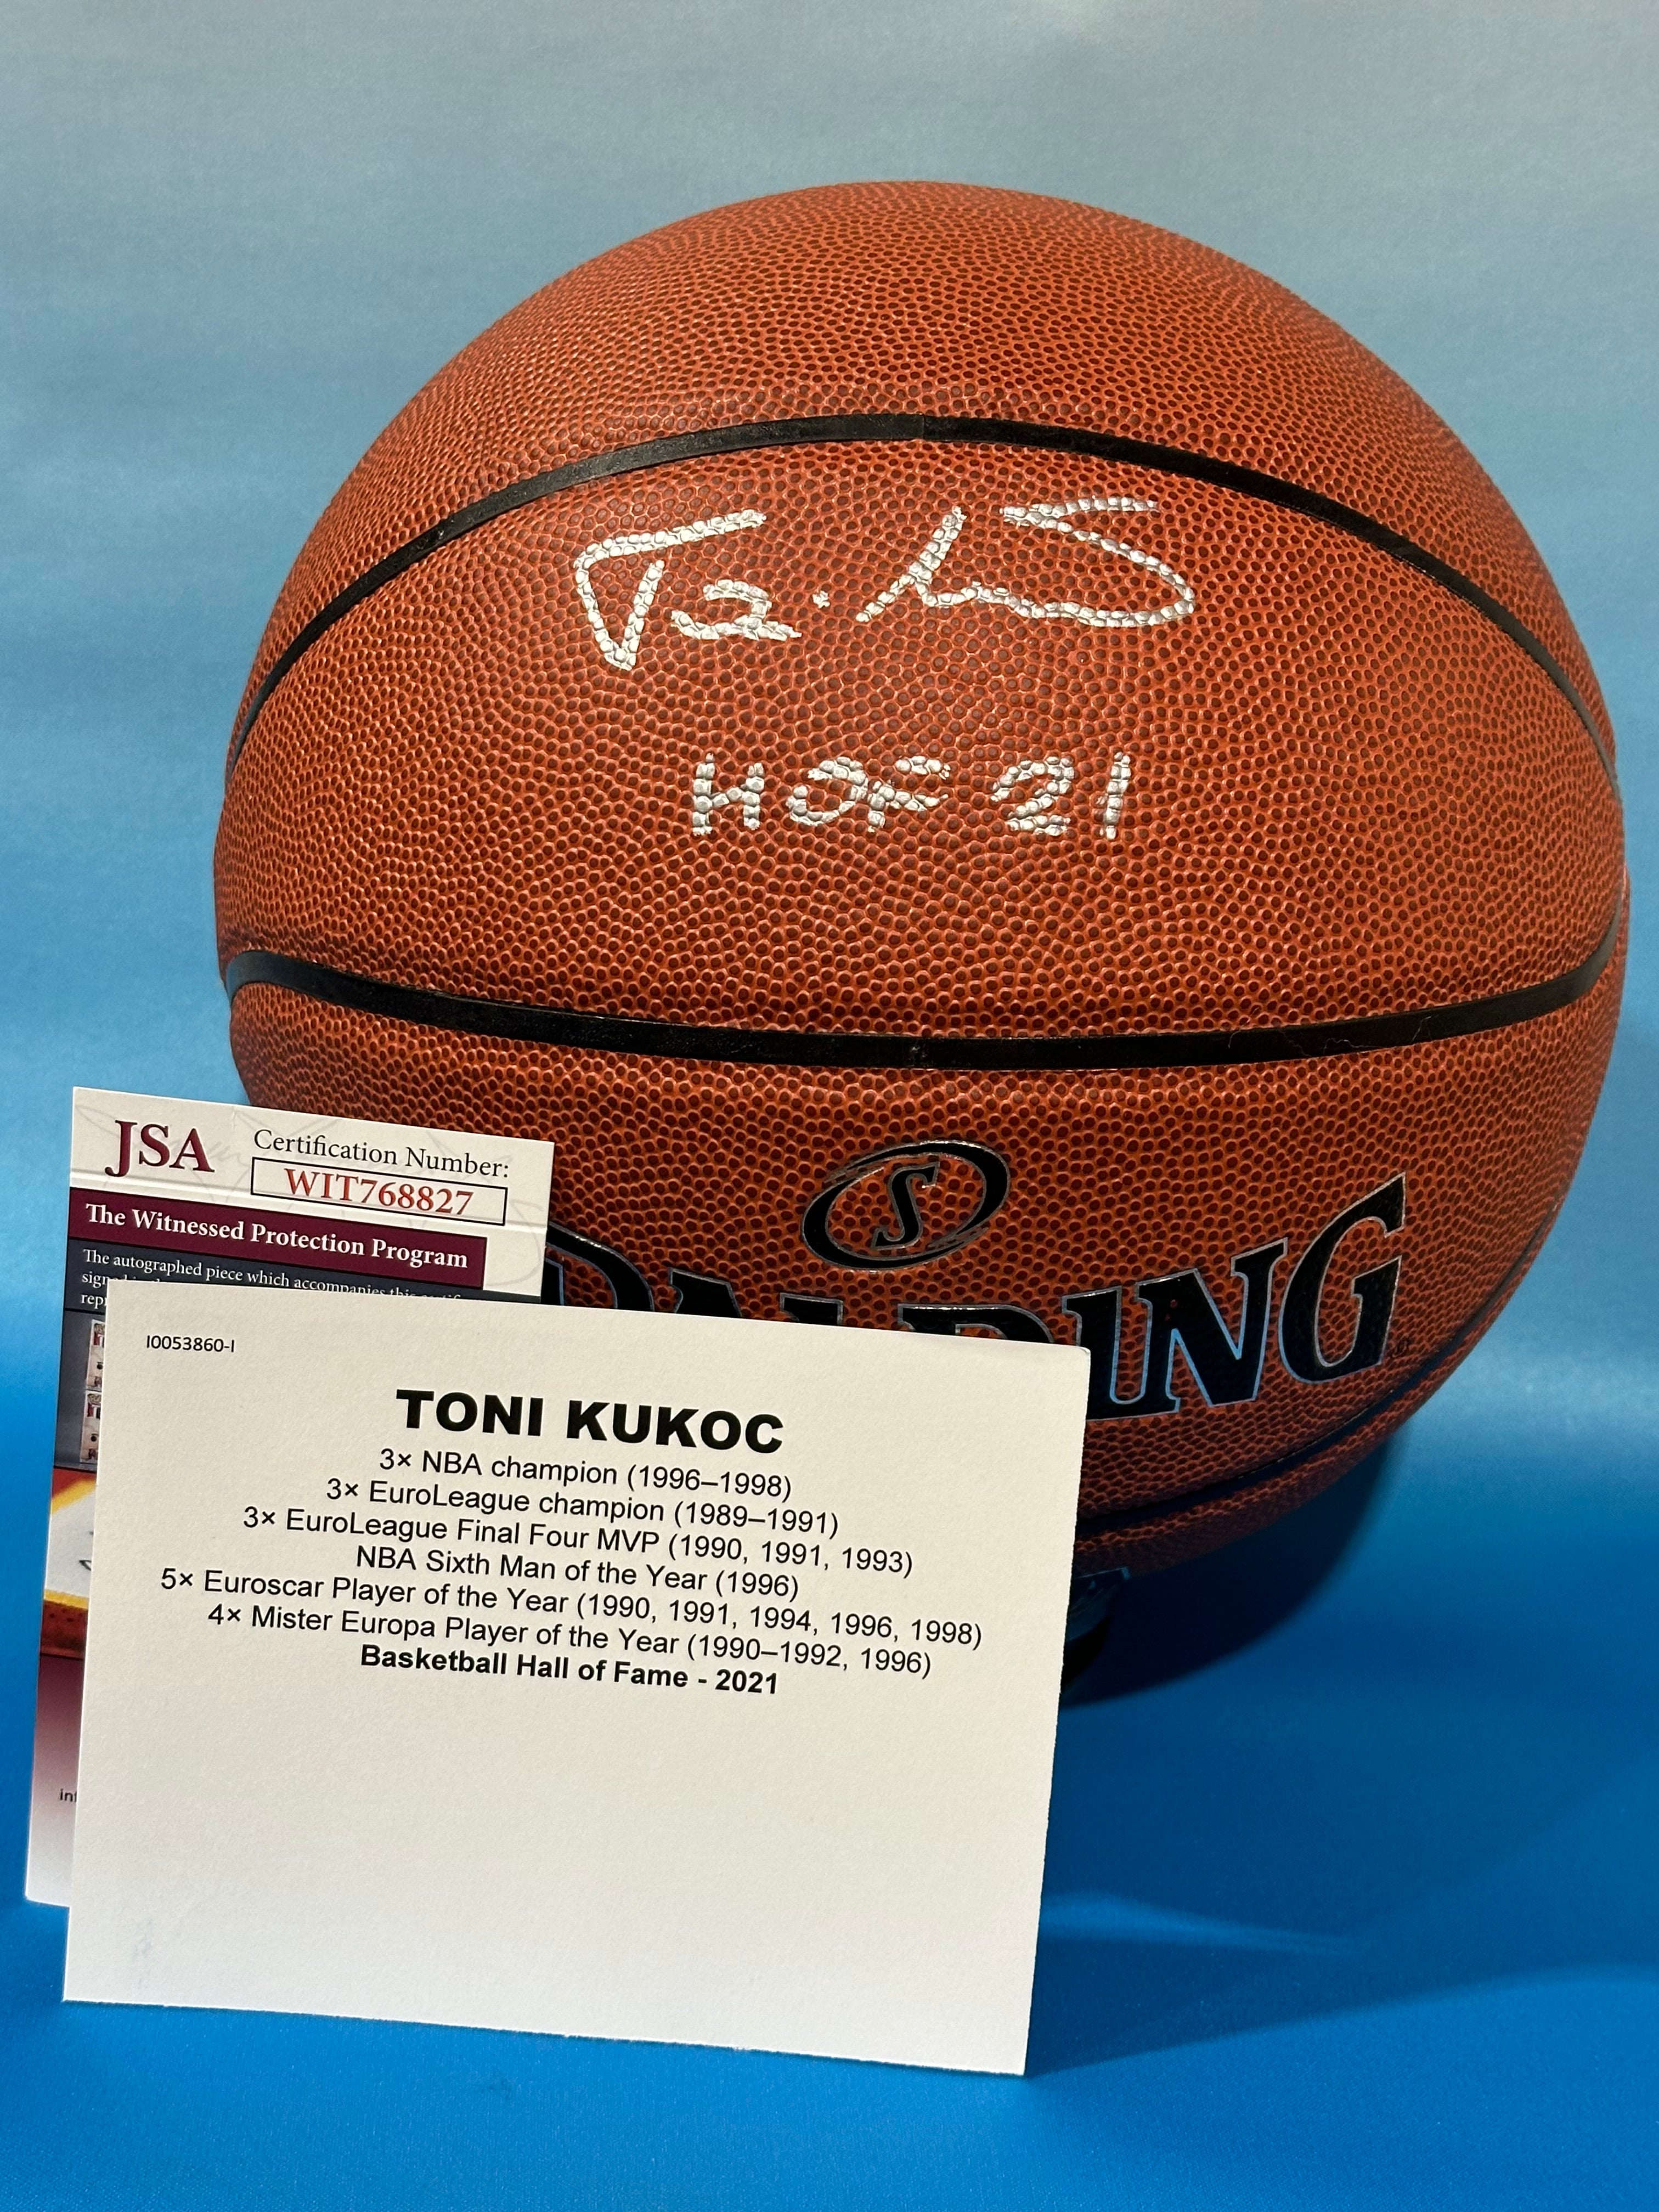 HOF 21
S
JSA
Certification Number:
WIT768827
The Witnessed Protection Program
The autographed piece which accompanies this
I0053860-I
TONI KUKOC
3× NBA champion (1996–1998)
3× EuroLeague champion (1989–1991)
3× EuroLeague Final Four MVP (1990, 1991, 1993)
NBA Sixth Man of the Year (1996)
5× Euroscar Player of the Year (1990, 1991, 1994, 1996, 1998)
4× Mister Europa Player of the Year (1990–1992, 1996)
Basketball Hall of Fame - 2021